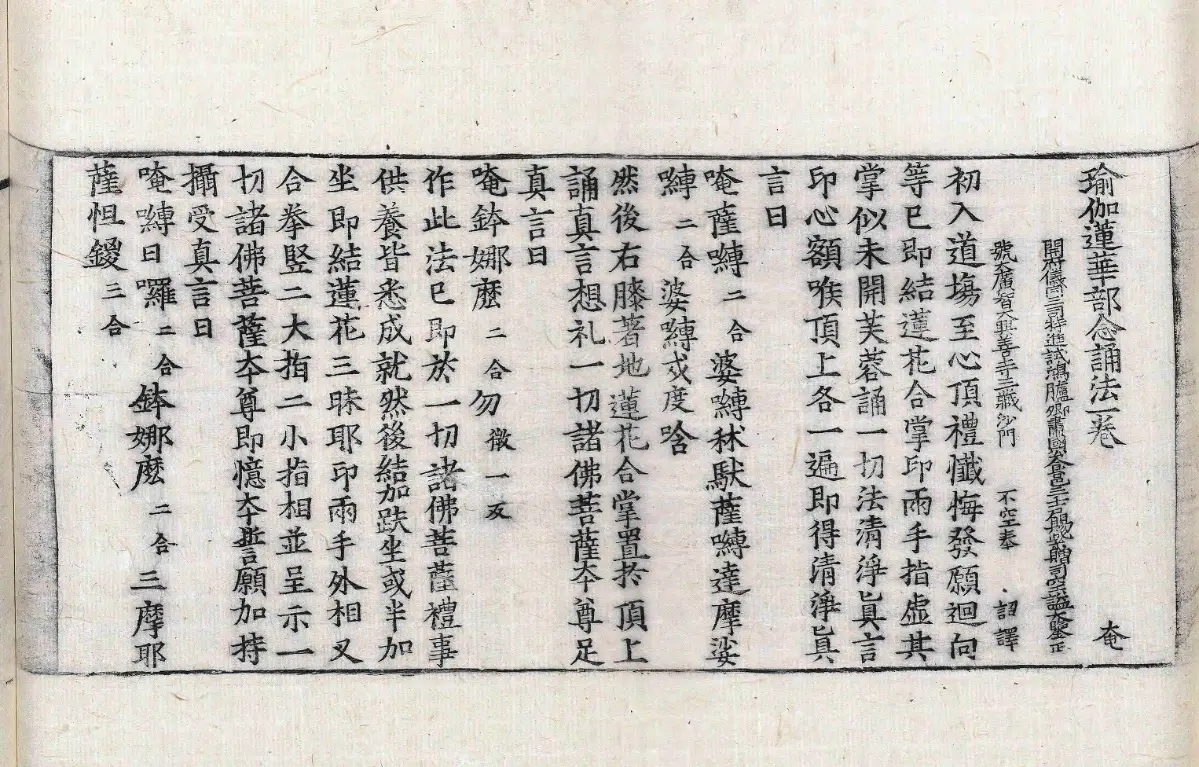 瑜伽蓮華部念誦法一卷 奄
開府儀同三司特進試鴻臚卿肅國公食邑三千戶賜紫贈司空謚大鑒正
號大廣智大興善寺三藏沙門 不空奉 詔譯
初入道塲至心頂禮懺悔發願迴向
等已即結蓮花合掌印兩手指虛其
掌似未開芙蓉誦一切法清淨真言
印心額喉頂上各一遍即得清淨真
言曰
唵薩嚩二合婆嚩秫馱薩嚩達摩娑
嚩二合婆嚩戍度唅
然後右膝著地蓮花合掌置扵頂上
誦真言想礼一切諸佛菩薩夲尊足
真言曰
唵鉢娜麼二合勿微一反
作此法已即於一切諸佛菩薩禮事
供養皆悉成就然後結加趺坐或半加
坐即結蓮花三昧耶印兩手外相叉
合拳竪二大指二小指相並呈示一
切諸佛菩薩夲尊即憶夲誓願加持
攝受真言曰
唵嚩日囉二合鉢娜麽二合三摩耶
薩怛鑁三合